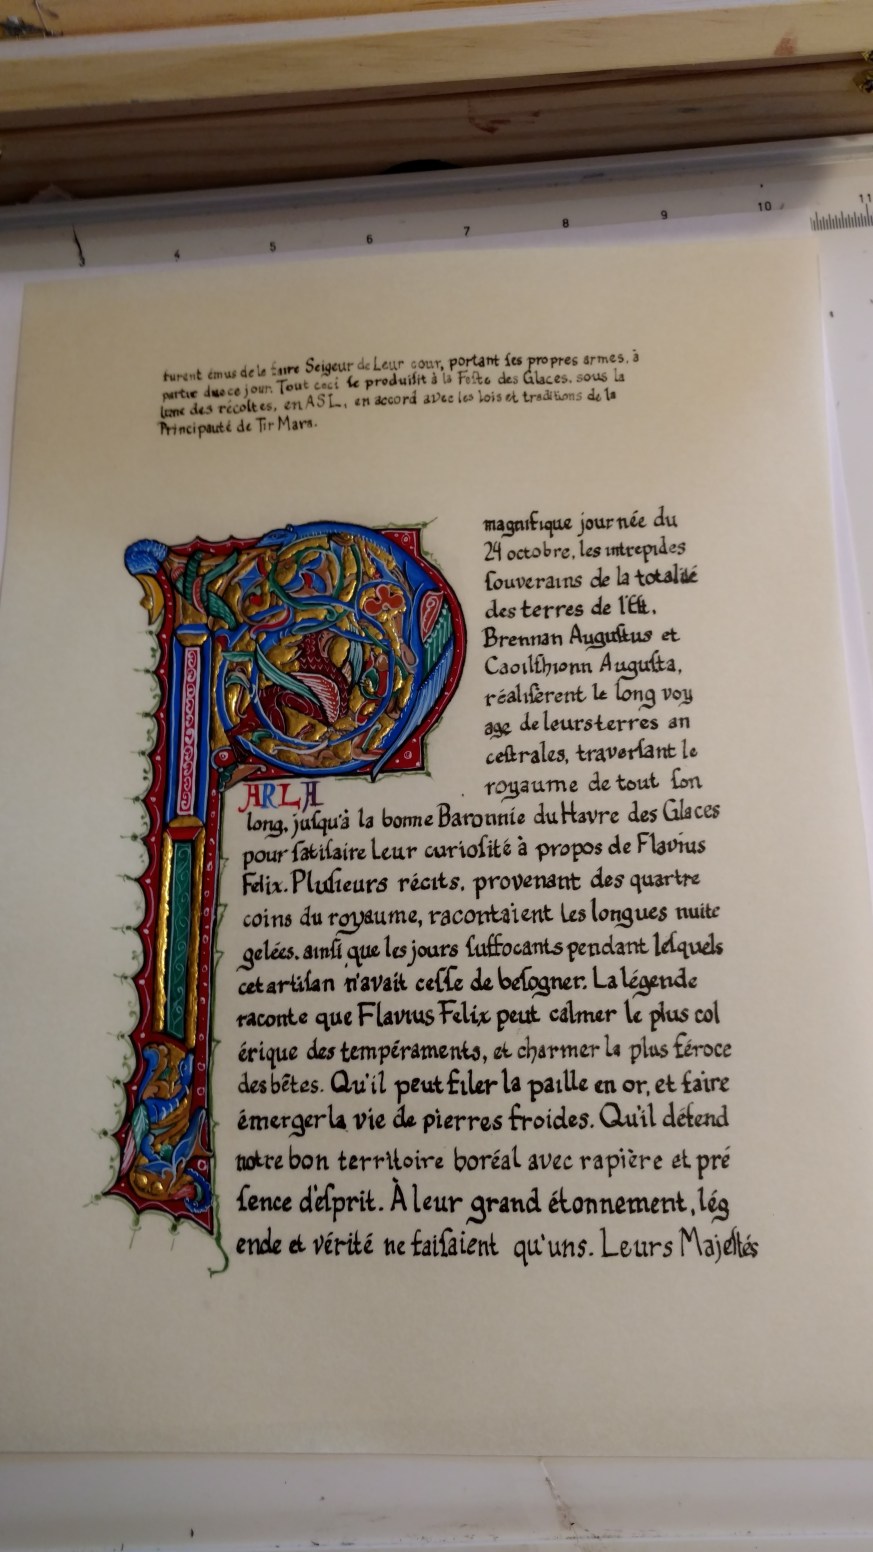 3 4 5 6 7 8 9 10 11
furent émus de le faire Seigeur de Leur cour, portant ſes propres armes, à
partir de ce jour. Tout ceci ſe produiſit à la Feſte des Glaces, sous la
lune des récoltes, en ASL, en accord avec les lois et traditions de la
Principauté de Tir Mara.
P
ARLA
magnifique journée du
24 octobre, les intrepides
ſouverains de la totalité
des terres de l'Eſt,
Brennan Auguſtus et
Caoilfhionn Auguſta,
réaliſerent le long voy
age de leurs terres an
ceſtrales, traverſant le
royaume de tout ſon
long, juſqu'à la bonne Baronnie du Havre des Glaces
pour ſatiſaire Leur curioſité à propos de Flavius
Felix. Pluſieurs récits, provenant des quartre
coins du royaume, racontaient les longues nuits
gelées, ainſi que les jours ſuffocants pendant leſquels
cet artiſan n'avait ceſſe de beſogner. La légende
raconte que Flavius Felix peut calmer le plus col
érique des tempéraments, et charmer la plus féroce
des bêtes. Qu'il peut filer la paille en or, et faire
émerger la vie de pierres froides. Qu'il défend
notre bon territoire boréal avec rapière et pré
ſence d'eſprit. À leur grand étonnement, lég
ende et vérité ne faiſaient qu'uns. Leurs Majeſtés